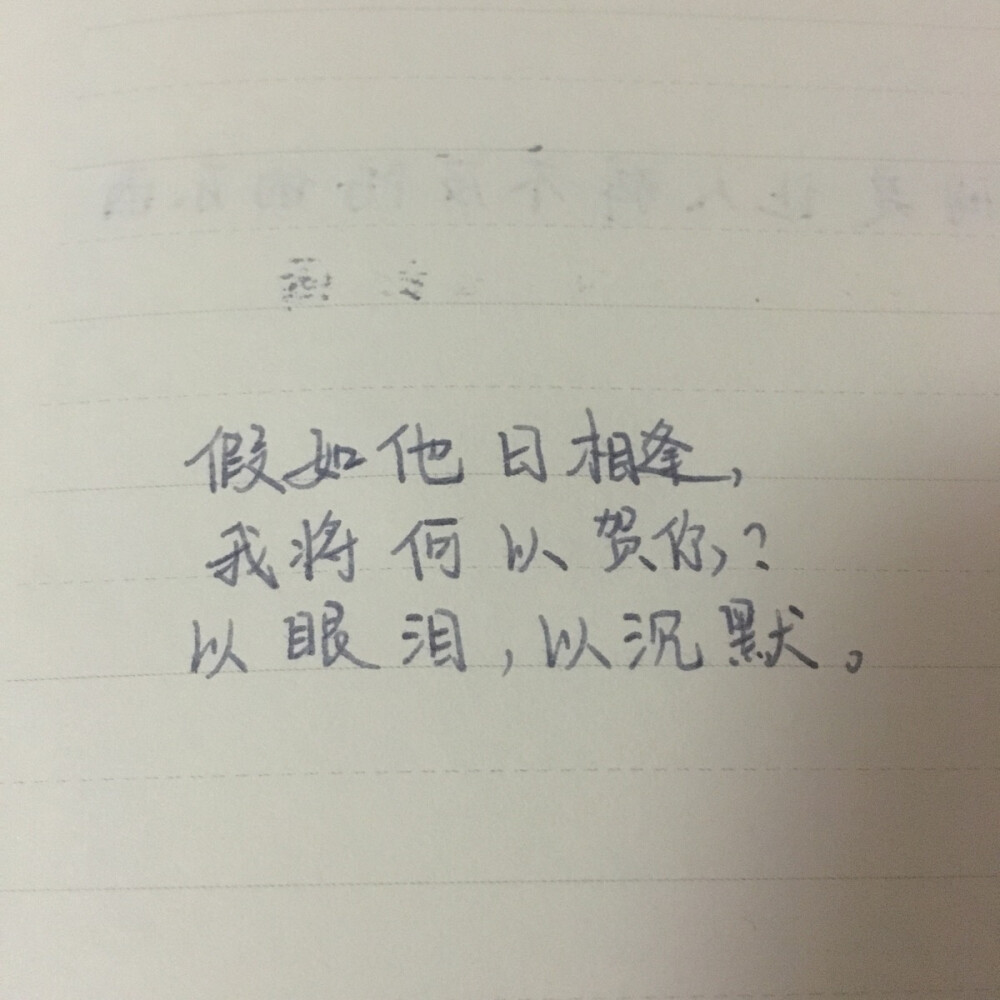 假如他日相逢,
我将何以贺你,?
以眼泪,以沉默。